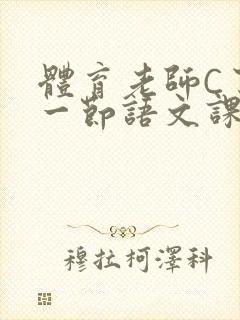 體育老師C
一節語文課
穆拉柯澤科